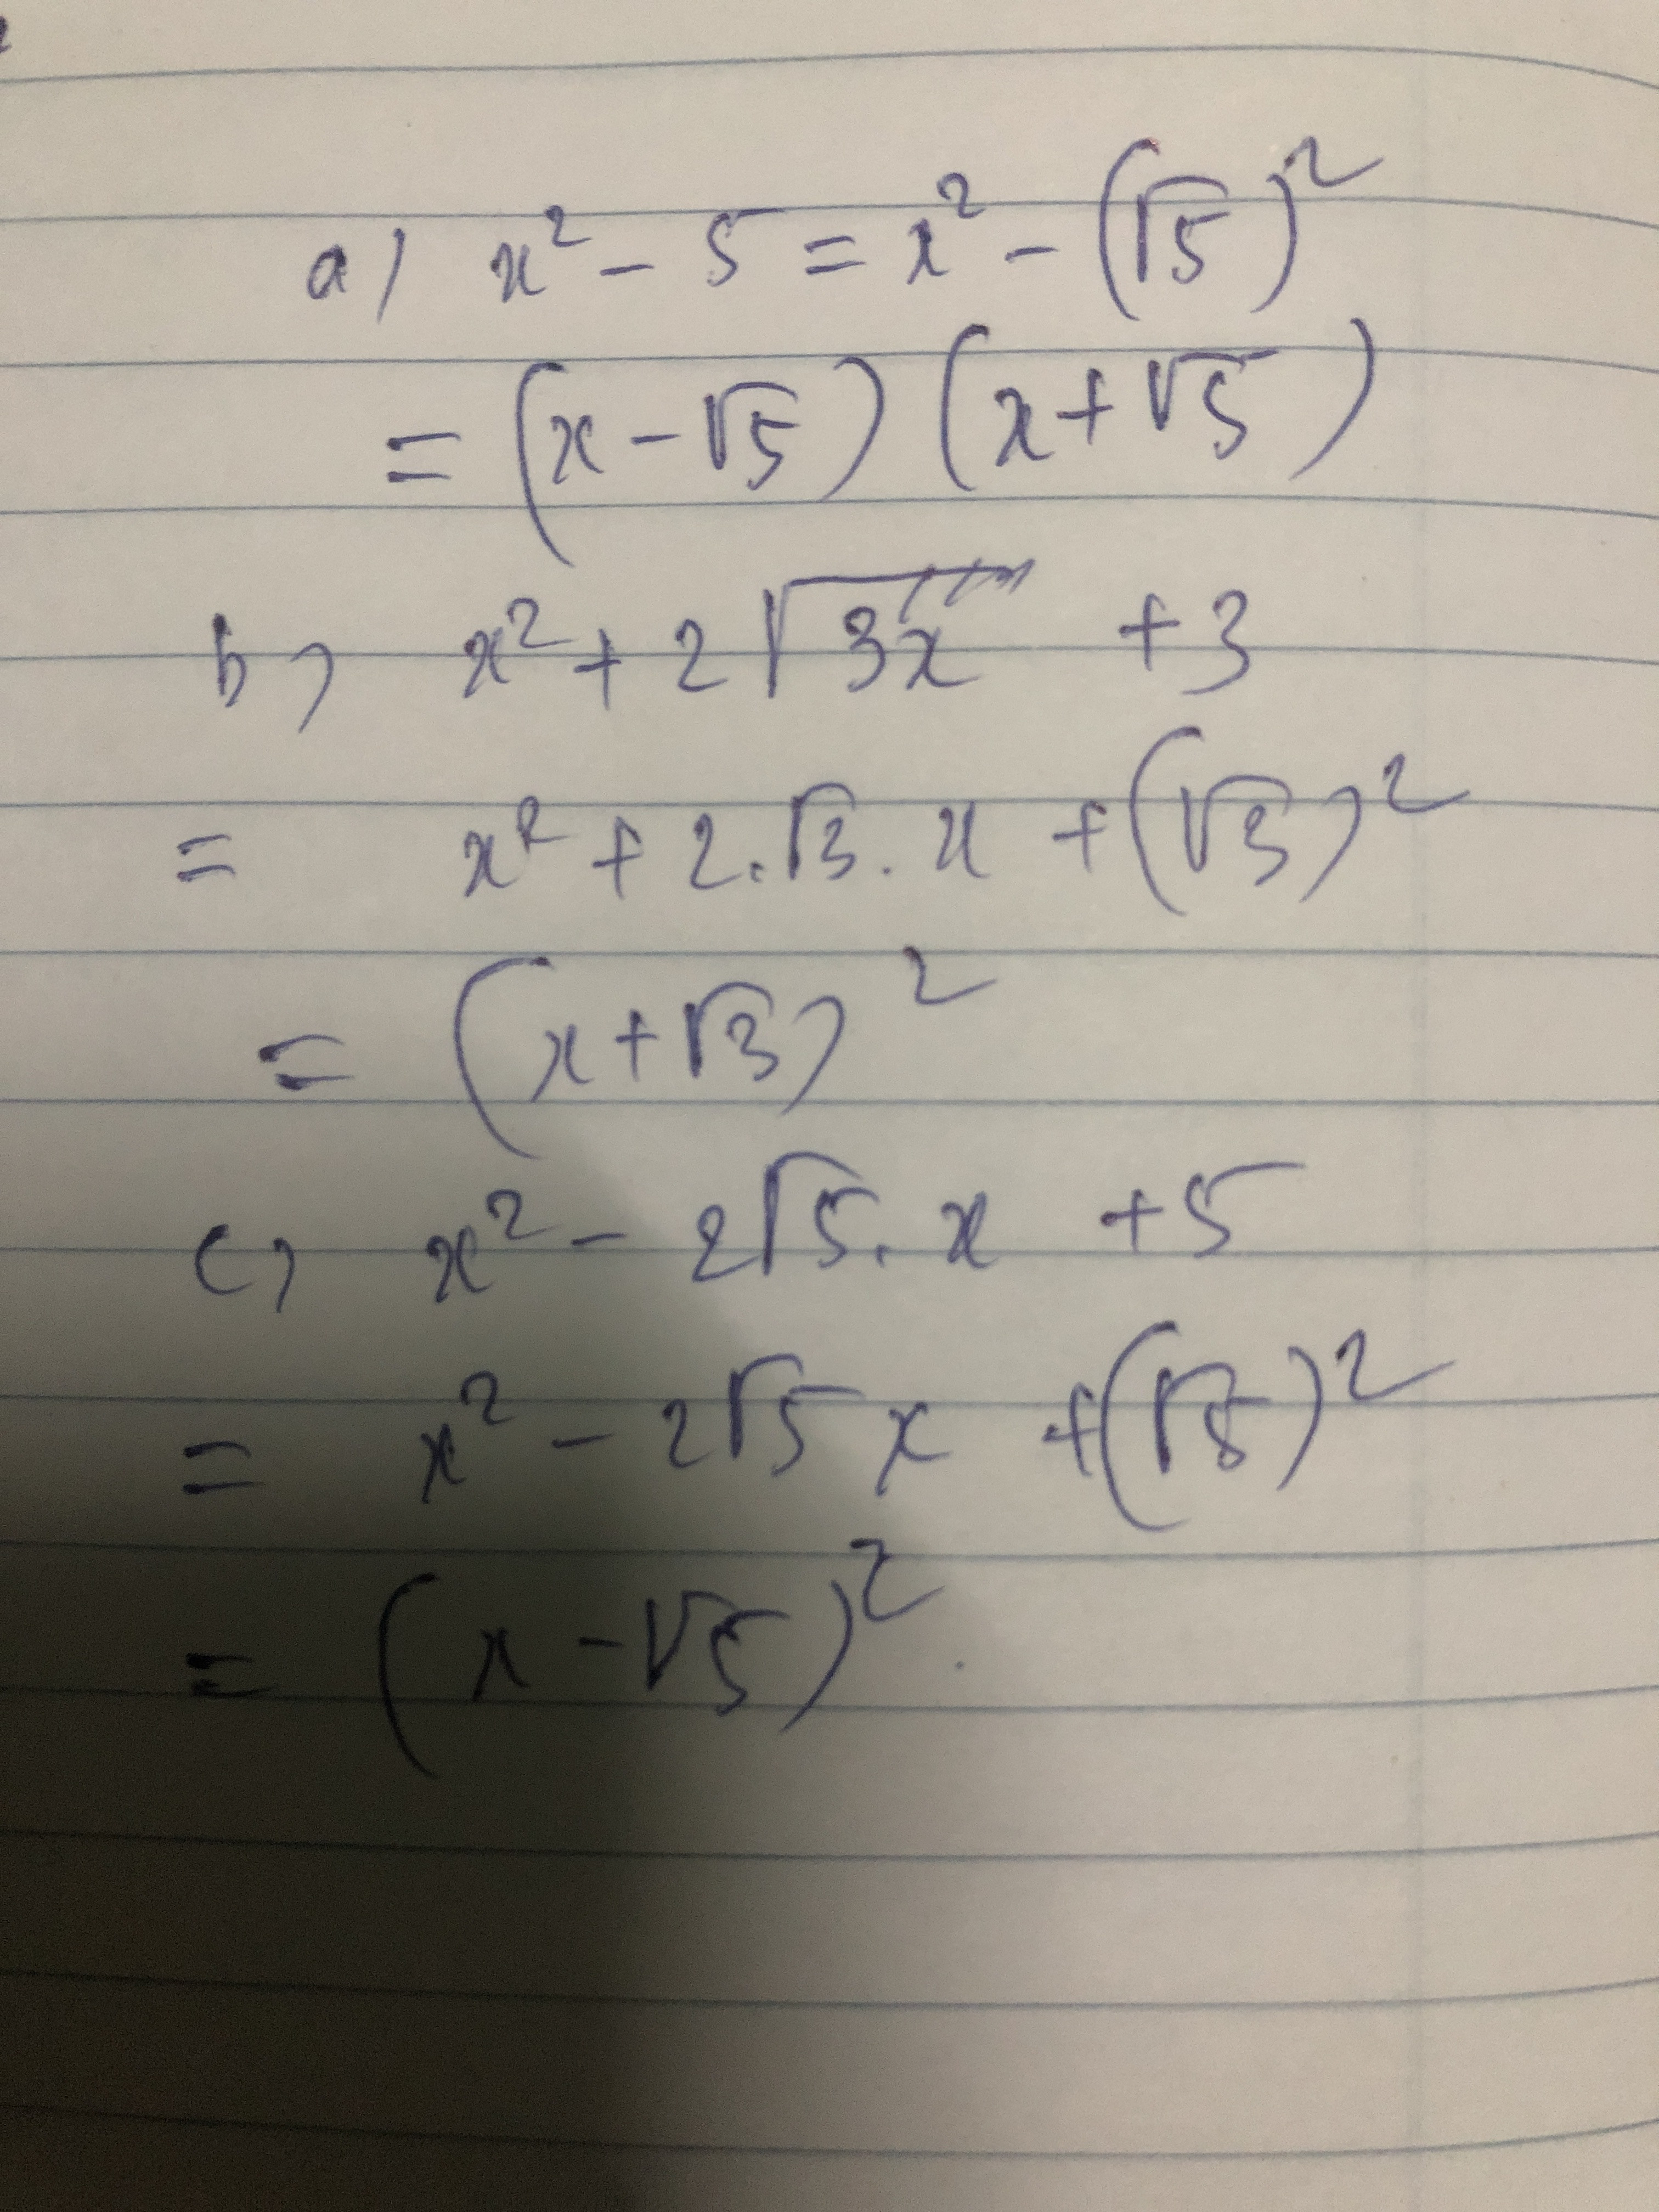 a) x² - 5 = x² - (√5)²
= (x - √5) (x + √5)
b) x² + 2√3x + 3
= x² + 2.√3.x + (√3)²
= (x + √3)²
c) x² - 2√5.x + 5
= x² - 2√5 x + (√5)²
= (x - √5)².